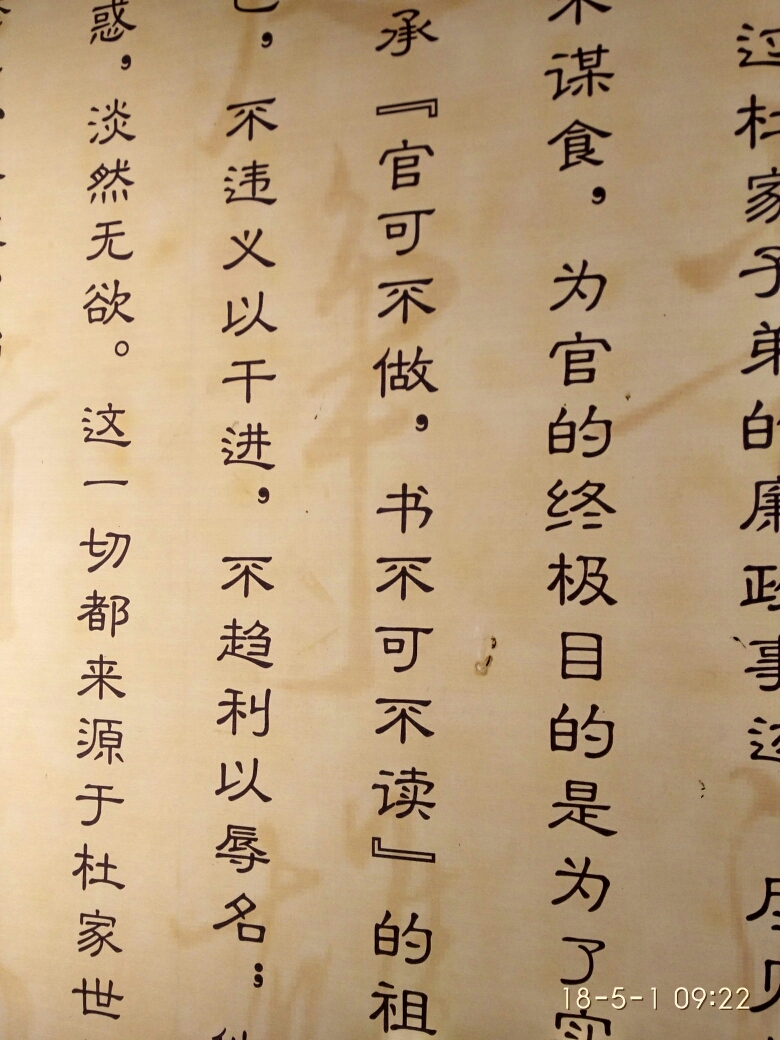 过杜家子弟的廉政事迹
不谋食，为官的终极目的是为了实
承『官可不做，书不可不读』的祖
，不违义以干进，不趋利以辱名；
惑，淡然无欲。这一切都来源于杜家世
18-5-1 09:22